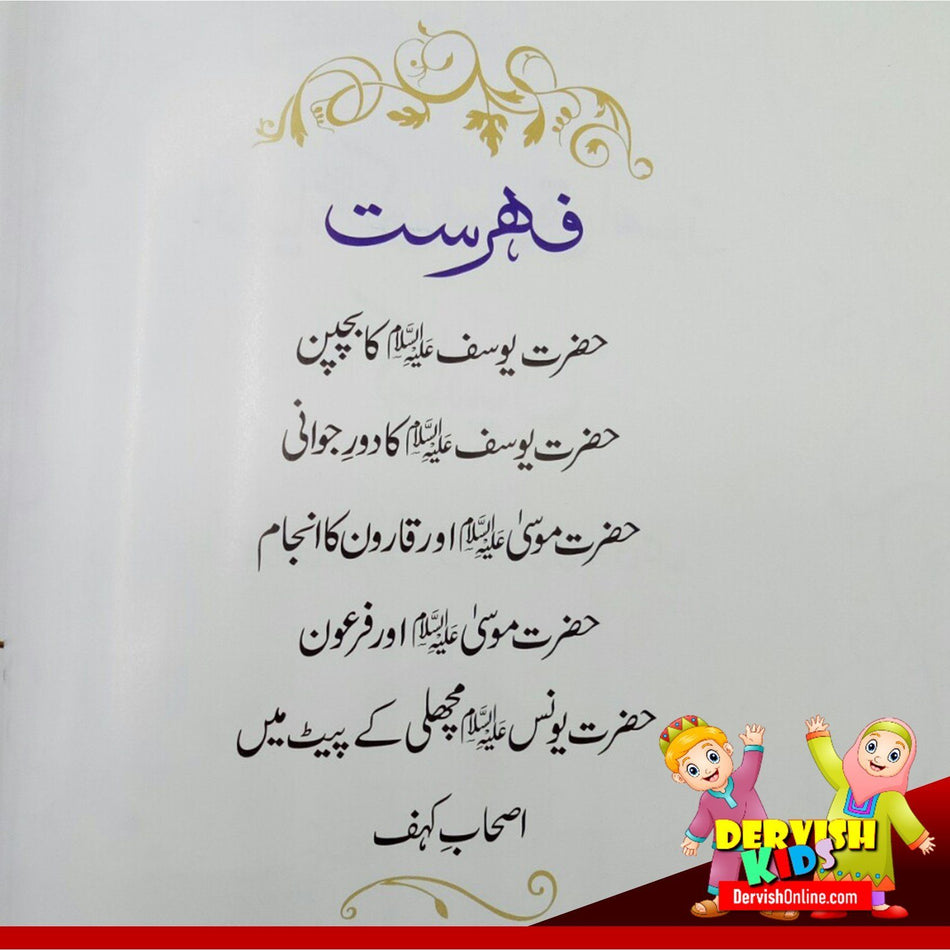 فہرست
حضرت یوسف علیہ السلام کا بچپن
حضرت یوسف علیہ السلام کا دورِ جوانی
حضرت موسیٰ علیہ السلام اور قارون کا انجام
حضرت موسیٰ علیہ السلام اور فرعون
حضرت یونس علیہ السلام مچھلی کے پیٹ میں
اصحابِ کہف
DERVISH
KIDS
DervishOnline.com